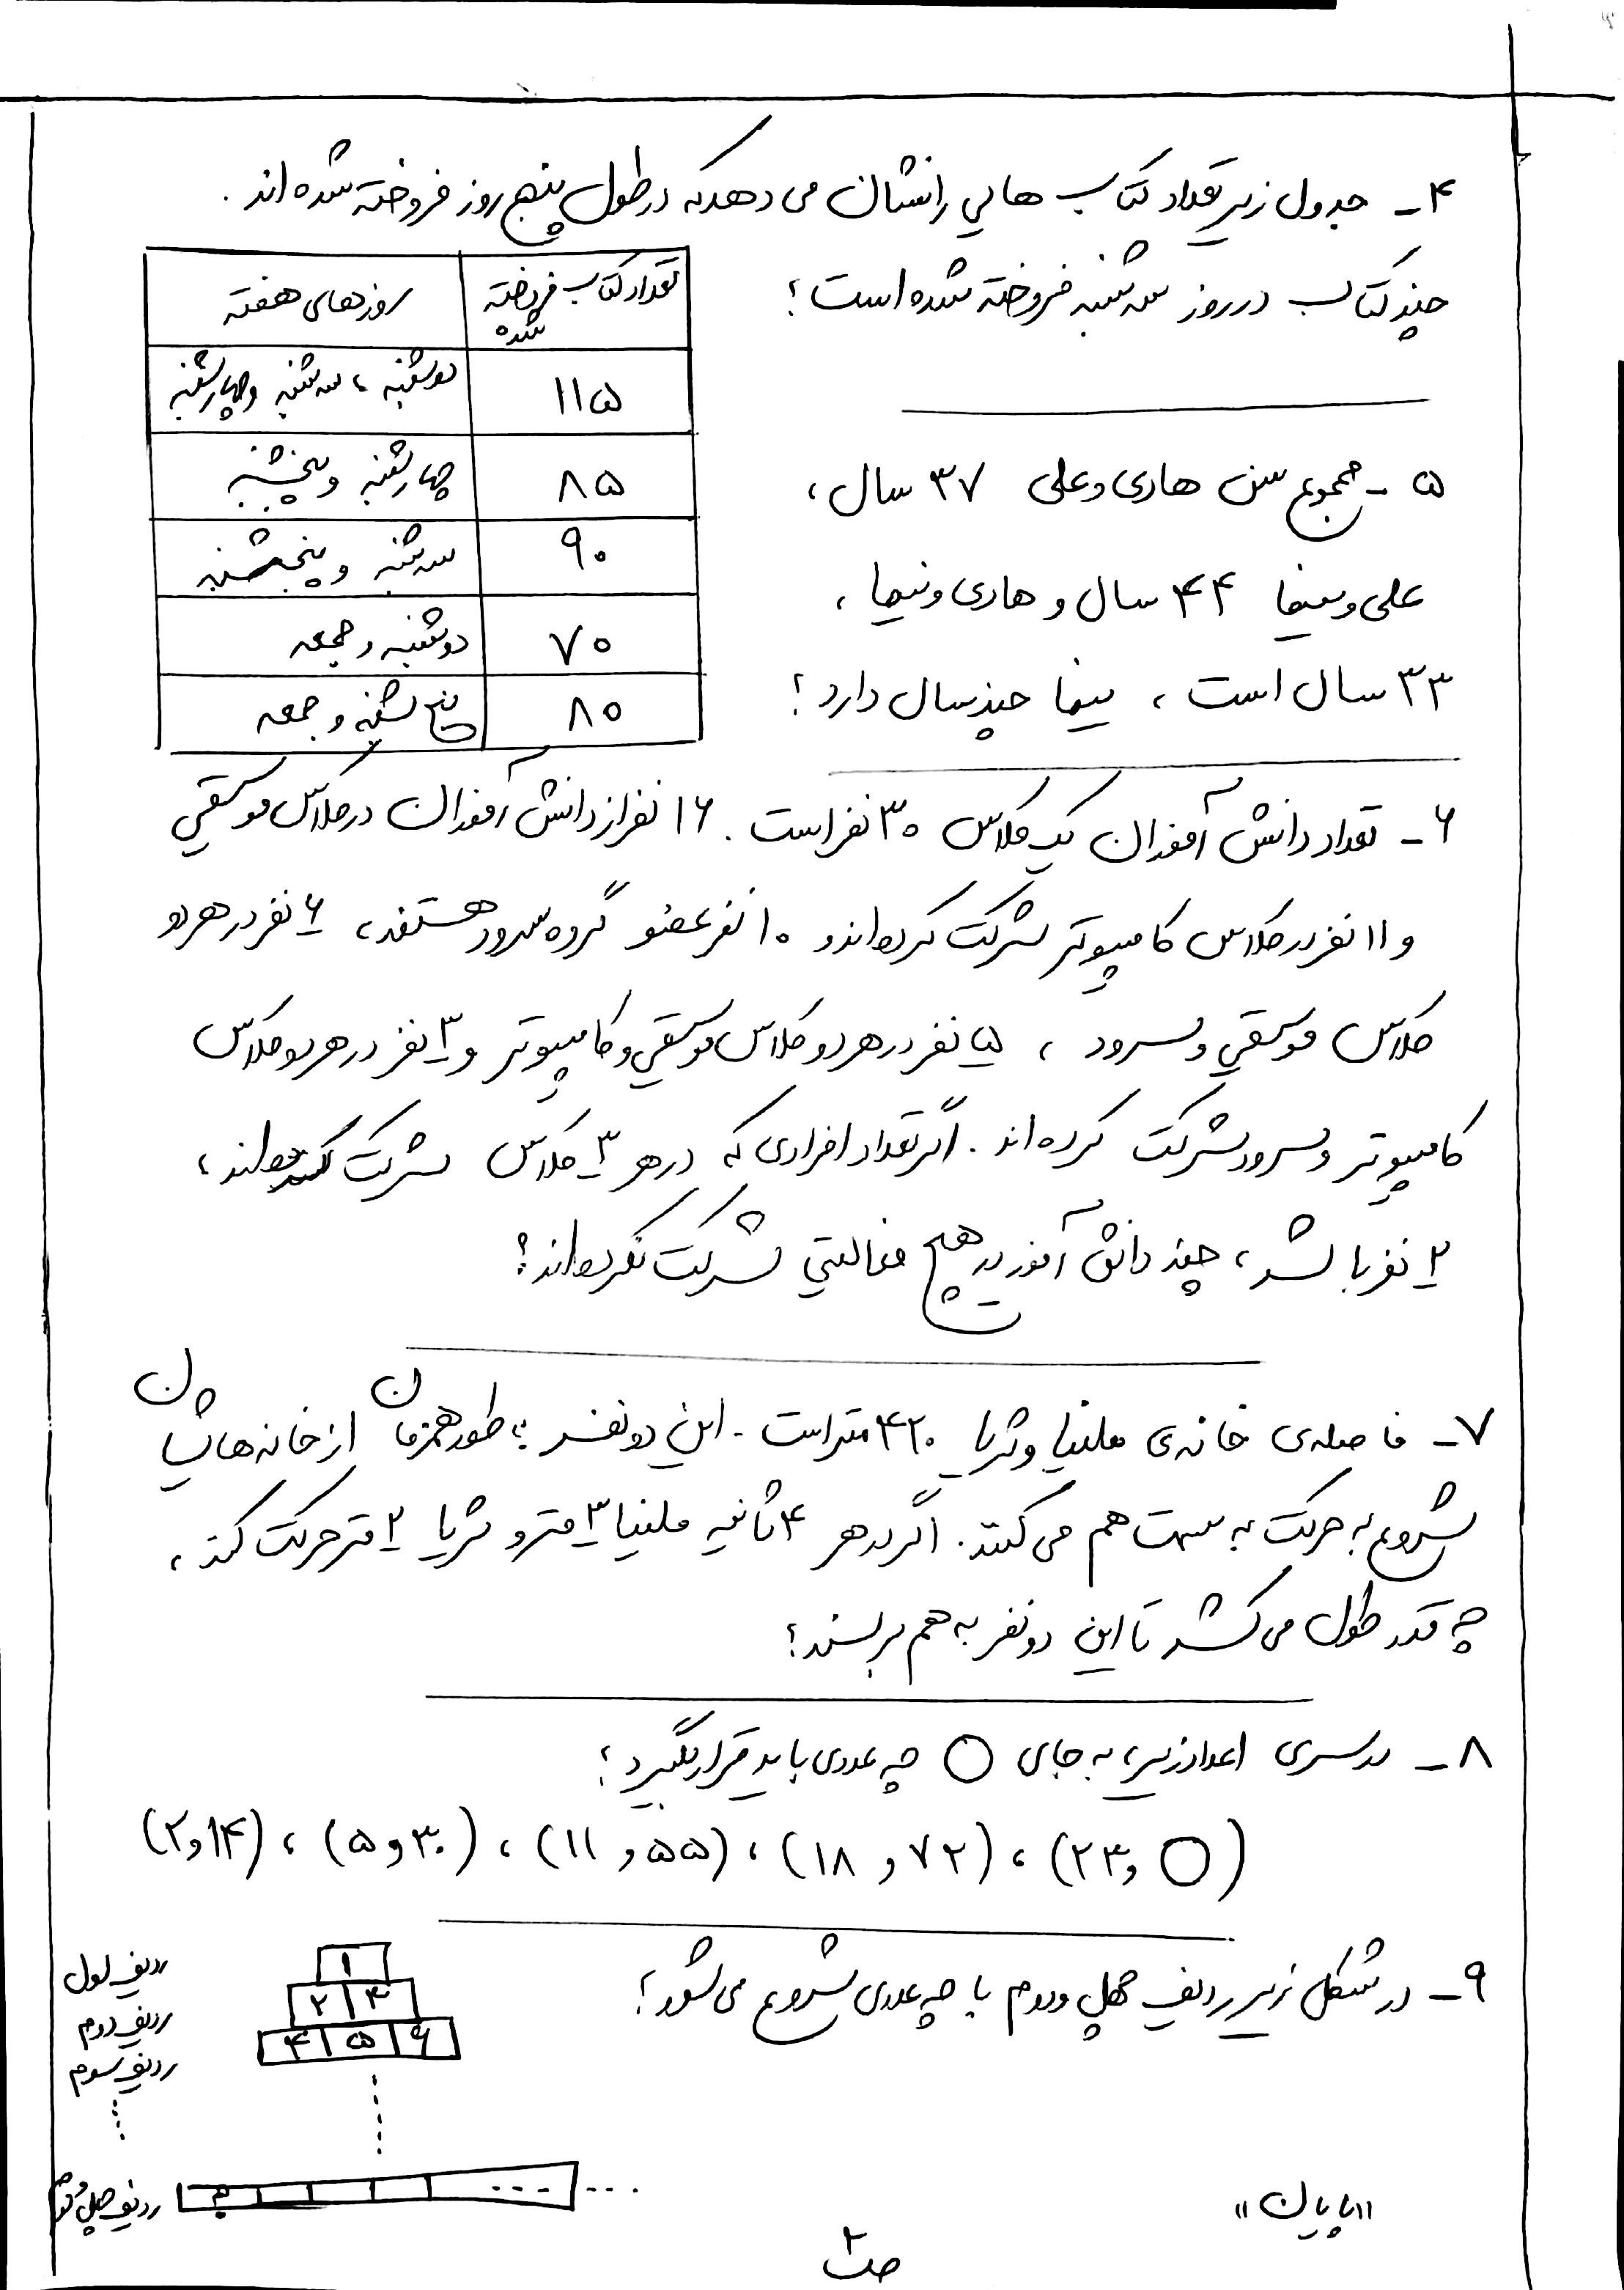 ۴- جدول زیر تعداد کتاب هایی را نشان می دهد که در طول پنج روز فروخته شده اند.
چند کتاب در روز سه شنبه فروخته شده است؟
روزهای هفته | تعداد کتاب فروخته شده
دوشنبه، سه شنبه و چهارشنبه | ۱۱۵
چهارشنبه و پنجشنبه | ۸۵
سه شنبه و پنجشنبه | ۹۰
دوشنبه و جمعه | ۷۰
پنج شنبه و جمعه | ۸۰
۵- مجموع سن هادی و علی ۳۷ سال،
علی و نیما ۴۴ سال و هادی و نیما،
۳۳ سال است، نیما چند سال دارد؟
۶- تعداد دانش آموزان یک کلاس ۳۰ نفر است. ۱۶ نفر از دانش آموزان در کلاس موسیقی
و ۱۱ نفر در کلاس کامپیوتر شرکت کرده اند و ۱۰ نفر عضو گروه سرود هستند، ۶ نفر در هر دو
کلاس موسیقی و سرود، ۵ نفر در هر دو کلاس موسیقی و کامپیوتر و ۳ نفر در هر دو کلاس
کامپیوتر و سرود شرکت کرده اند. اگر تعداد افرادی که در هر ۳ کلاس شرکت کرده اند،
۲ نفر باشد، چند دانش آموز در هیچ فعالیتی شرکت نکرده اند؟
۷- فاصله ی خانه ی ملینا و ثریا ۴۲۰ متر است. این دو نفر به طور همزمان از خانه هایشان
شروع به حرکت به سمت هم می کنند. اگر در هر ۴ ثانیه ملینا ۳ متر و ثریا ۲ متر حرکت کند،
چه قدر طول می کشد تا این دو نفر به هم برسند؟
۸- در سری اعداد زیر، به جای ○ چه عددی باید قرار بگیرد؟
(۲ و ۱۴)، (۵ و ۳۰)، (۱۱ و ۵۵)، (۱۸ و ۷۲)، (۲۳ و ○)
۹- در شکل زیر ردیف چهل و دوم با چه عددی شروع می شود؟
ردیف اول ۱
ردیف دوم ۲ ۳
ردیف سوم ۴ ۵ ۶
ردیف چهل و دوم ؟ ...
"پایان"
ص ۲